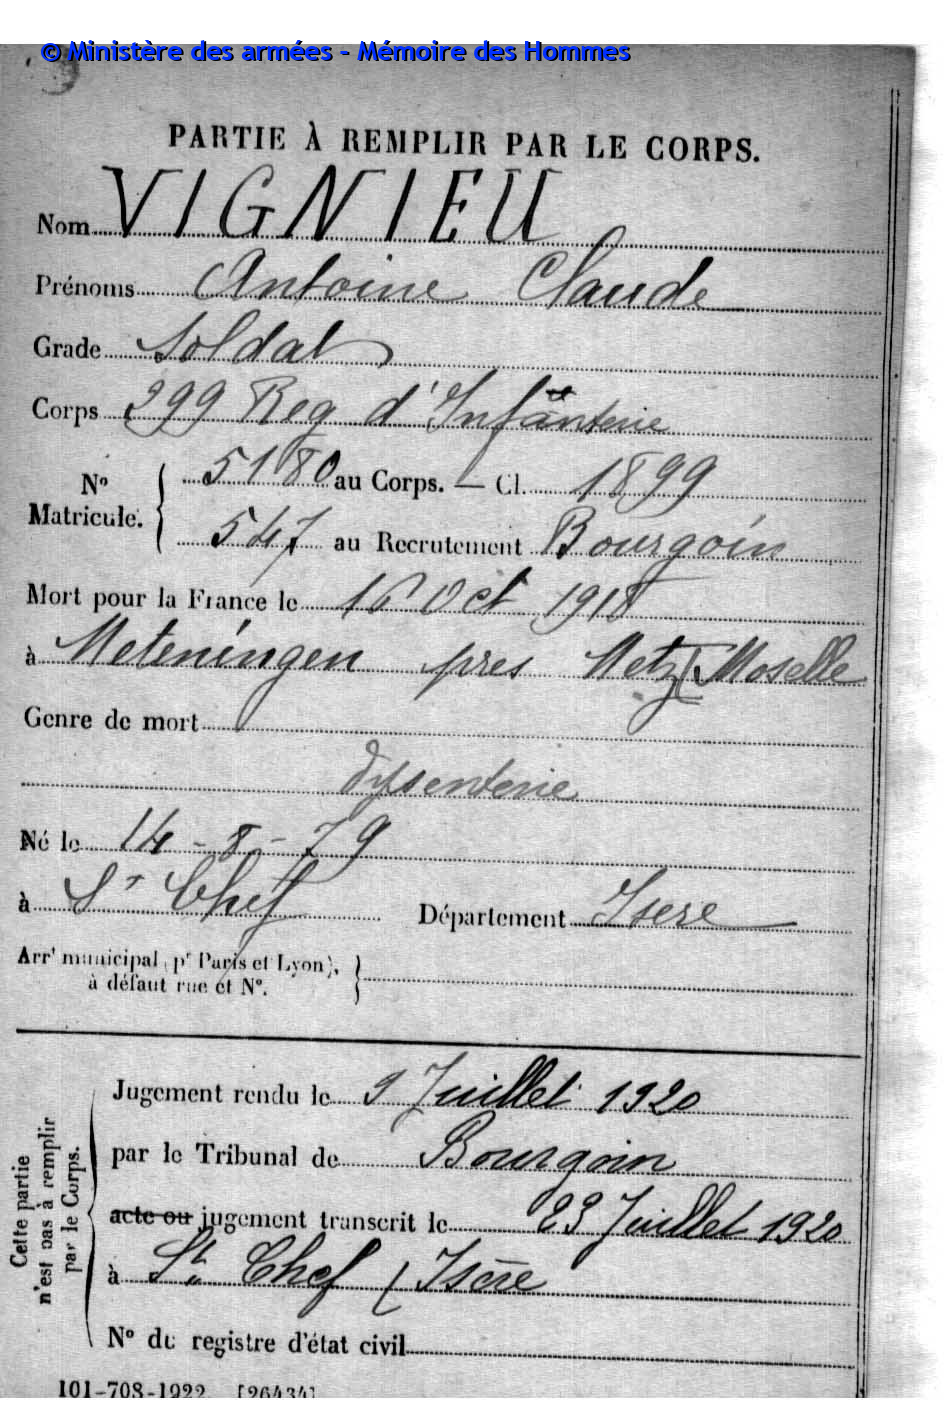 © Ministère des armées - Mémoire des Hommes
PARTIE À REMPLIR PAR LE CORPS.
Nom VIGNIEU
Prénoms Antoine Claude
Grade Soldat
Corps 299 Reg d'Infanterie
N° Matricule. 5180 au Corps. — Cl. 1899
547 au Recrutement Bourgoin
Mort pour la France le 16 Oct 1918
à Meteningen pres Metz (Moselle
Genre de mort
dysenterie
Né le 14-8-79
à St Chef Département Isere
Arrt municipal (pr Paris et Lyon),
à défaut rue et N°.
Cette partie n'est pas à remplir par le Corps.
Jugement rendu le 9 Juillet 1920
par le Tribunal de Bourgoin
acte ou jugement transcrit le 23 Juillet 1920
à St Chef (Isère
N° du registre d'état civil
101-708-1922. [26434]